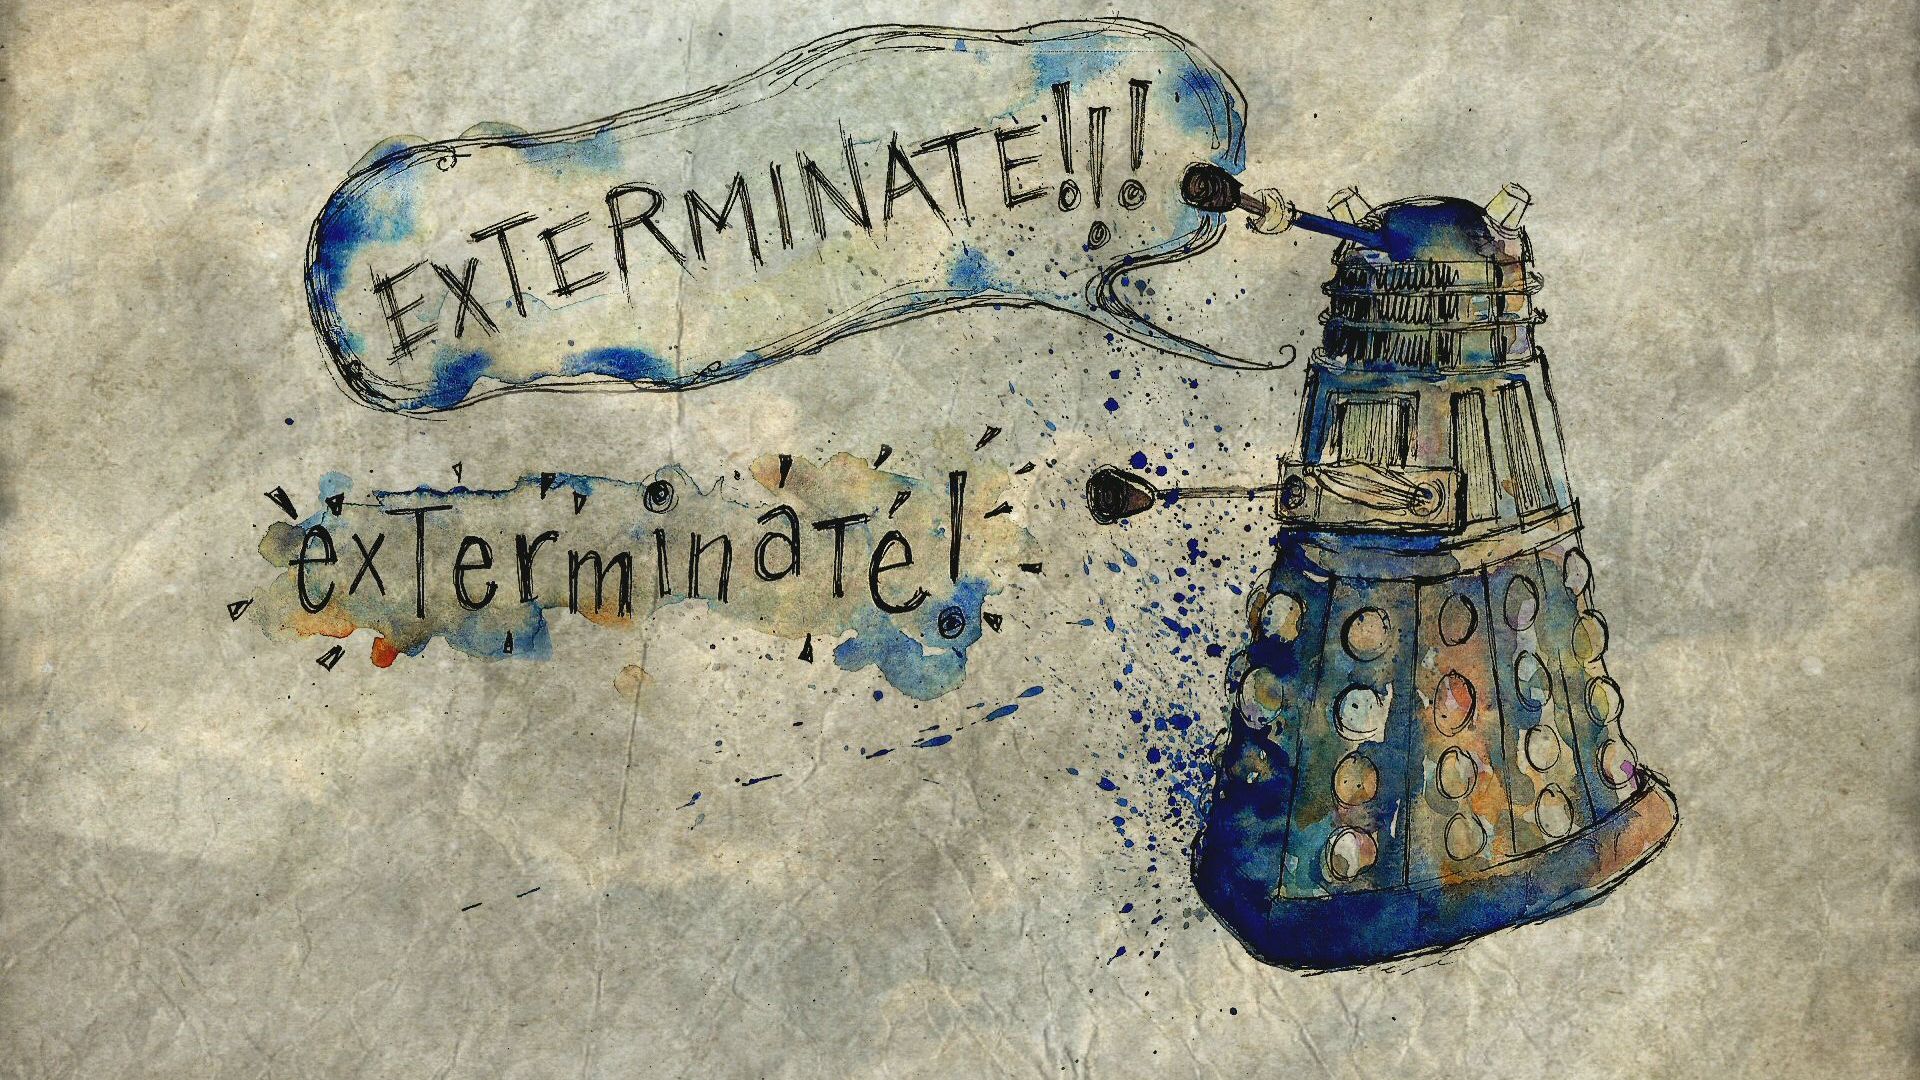 EXTERMINATE!!!
exterminate!